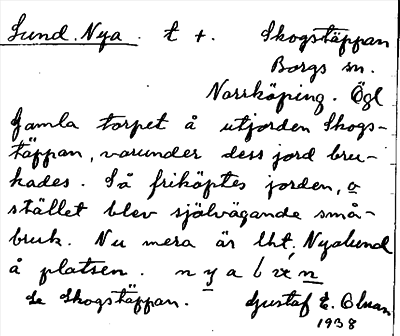 Lund, Nya. t +. Skogstäppan
Borgs sn.
Norrköping. Ögl
Gamla torpet å utjorden Skogs-
täppan, varunder dess jord bru-
kades. Så friköptes jorden, o
stället blev självägande små-
bruk. Nu mera är lht. Nyalund
å platsen. n y a l
Se Skogstäppan. Gustaf E. Olman
1938